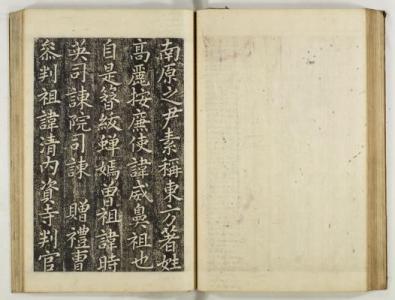 南原之尹素稱東方著姓
高麗按廉使諱威鼻祖也
自是簪紱蟬嫣曾祖諱時
英司諫院司諫 贈禮曹
叅判祖諱清內資寺判官